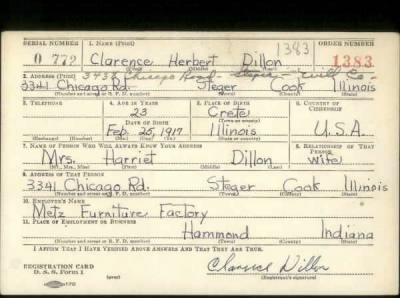 SERIAL NUMBER 1. NAME (Print) ORDER NUMBER
1383
0 772 Clarence Herbert Dillon 1383
(First) (Middle) (Last)
2. ADDRESS (Print) 3438 Chicago Road - Steger - Will Co-
3341 Chicago Rd. Steger Cook Illinois
(Number and street or R. F. D. number) (Town) (County) (State)
3. TELEPHONE 4. AGE IN YEARS 5. PLACE OF BIRTH 6. COUNTRY OF CITIZENSHIP
23 Crete
DATE OF BIRTH (Town or county)
Feb. 25, 1917 Illinois U.S.A.
(Exchange) (Number) (Mo.) (Day) (Yr.) (State or country)
7. NAME OF PERSON WHO WILL ALWAYS KNOW YOUR ADDRESS 8. RELATIONSHIP OF THAT PERSON
Mrs. Harriet Dillon wife
(Mr., Mrs., Miss) (First) (Middle) (Last)
9. ADDRESS OF THAT PERSON
3341 Chicago Rd. Steger Cook Illinois
(Number and street or R. F. D. number) (Town) (County) (State)
10. EMPLOYER'S NAME
Metz Furniture Factory
11. PLACE OF EMPLOYMENT OR BUSINESS
Hammond Indiana
(Number and street or R. F. D. number) (Town) (County) (State)
I AFFIRM THAT I HAVE VERIFIED ABOVE ANSWERS AND THAT THEY ARE TRUE.
REGISTRATION CARD
D. S. S. Form 1 (over) Clarence Dillon
(Registrant's signature)